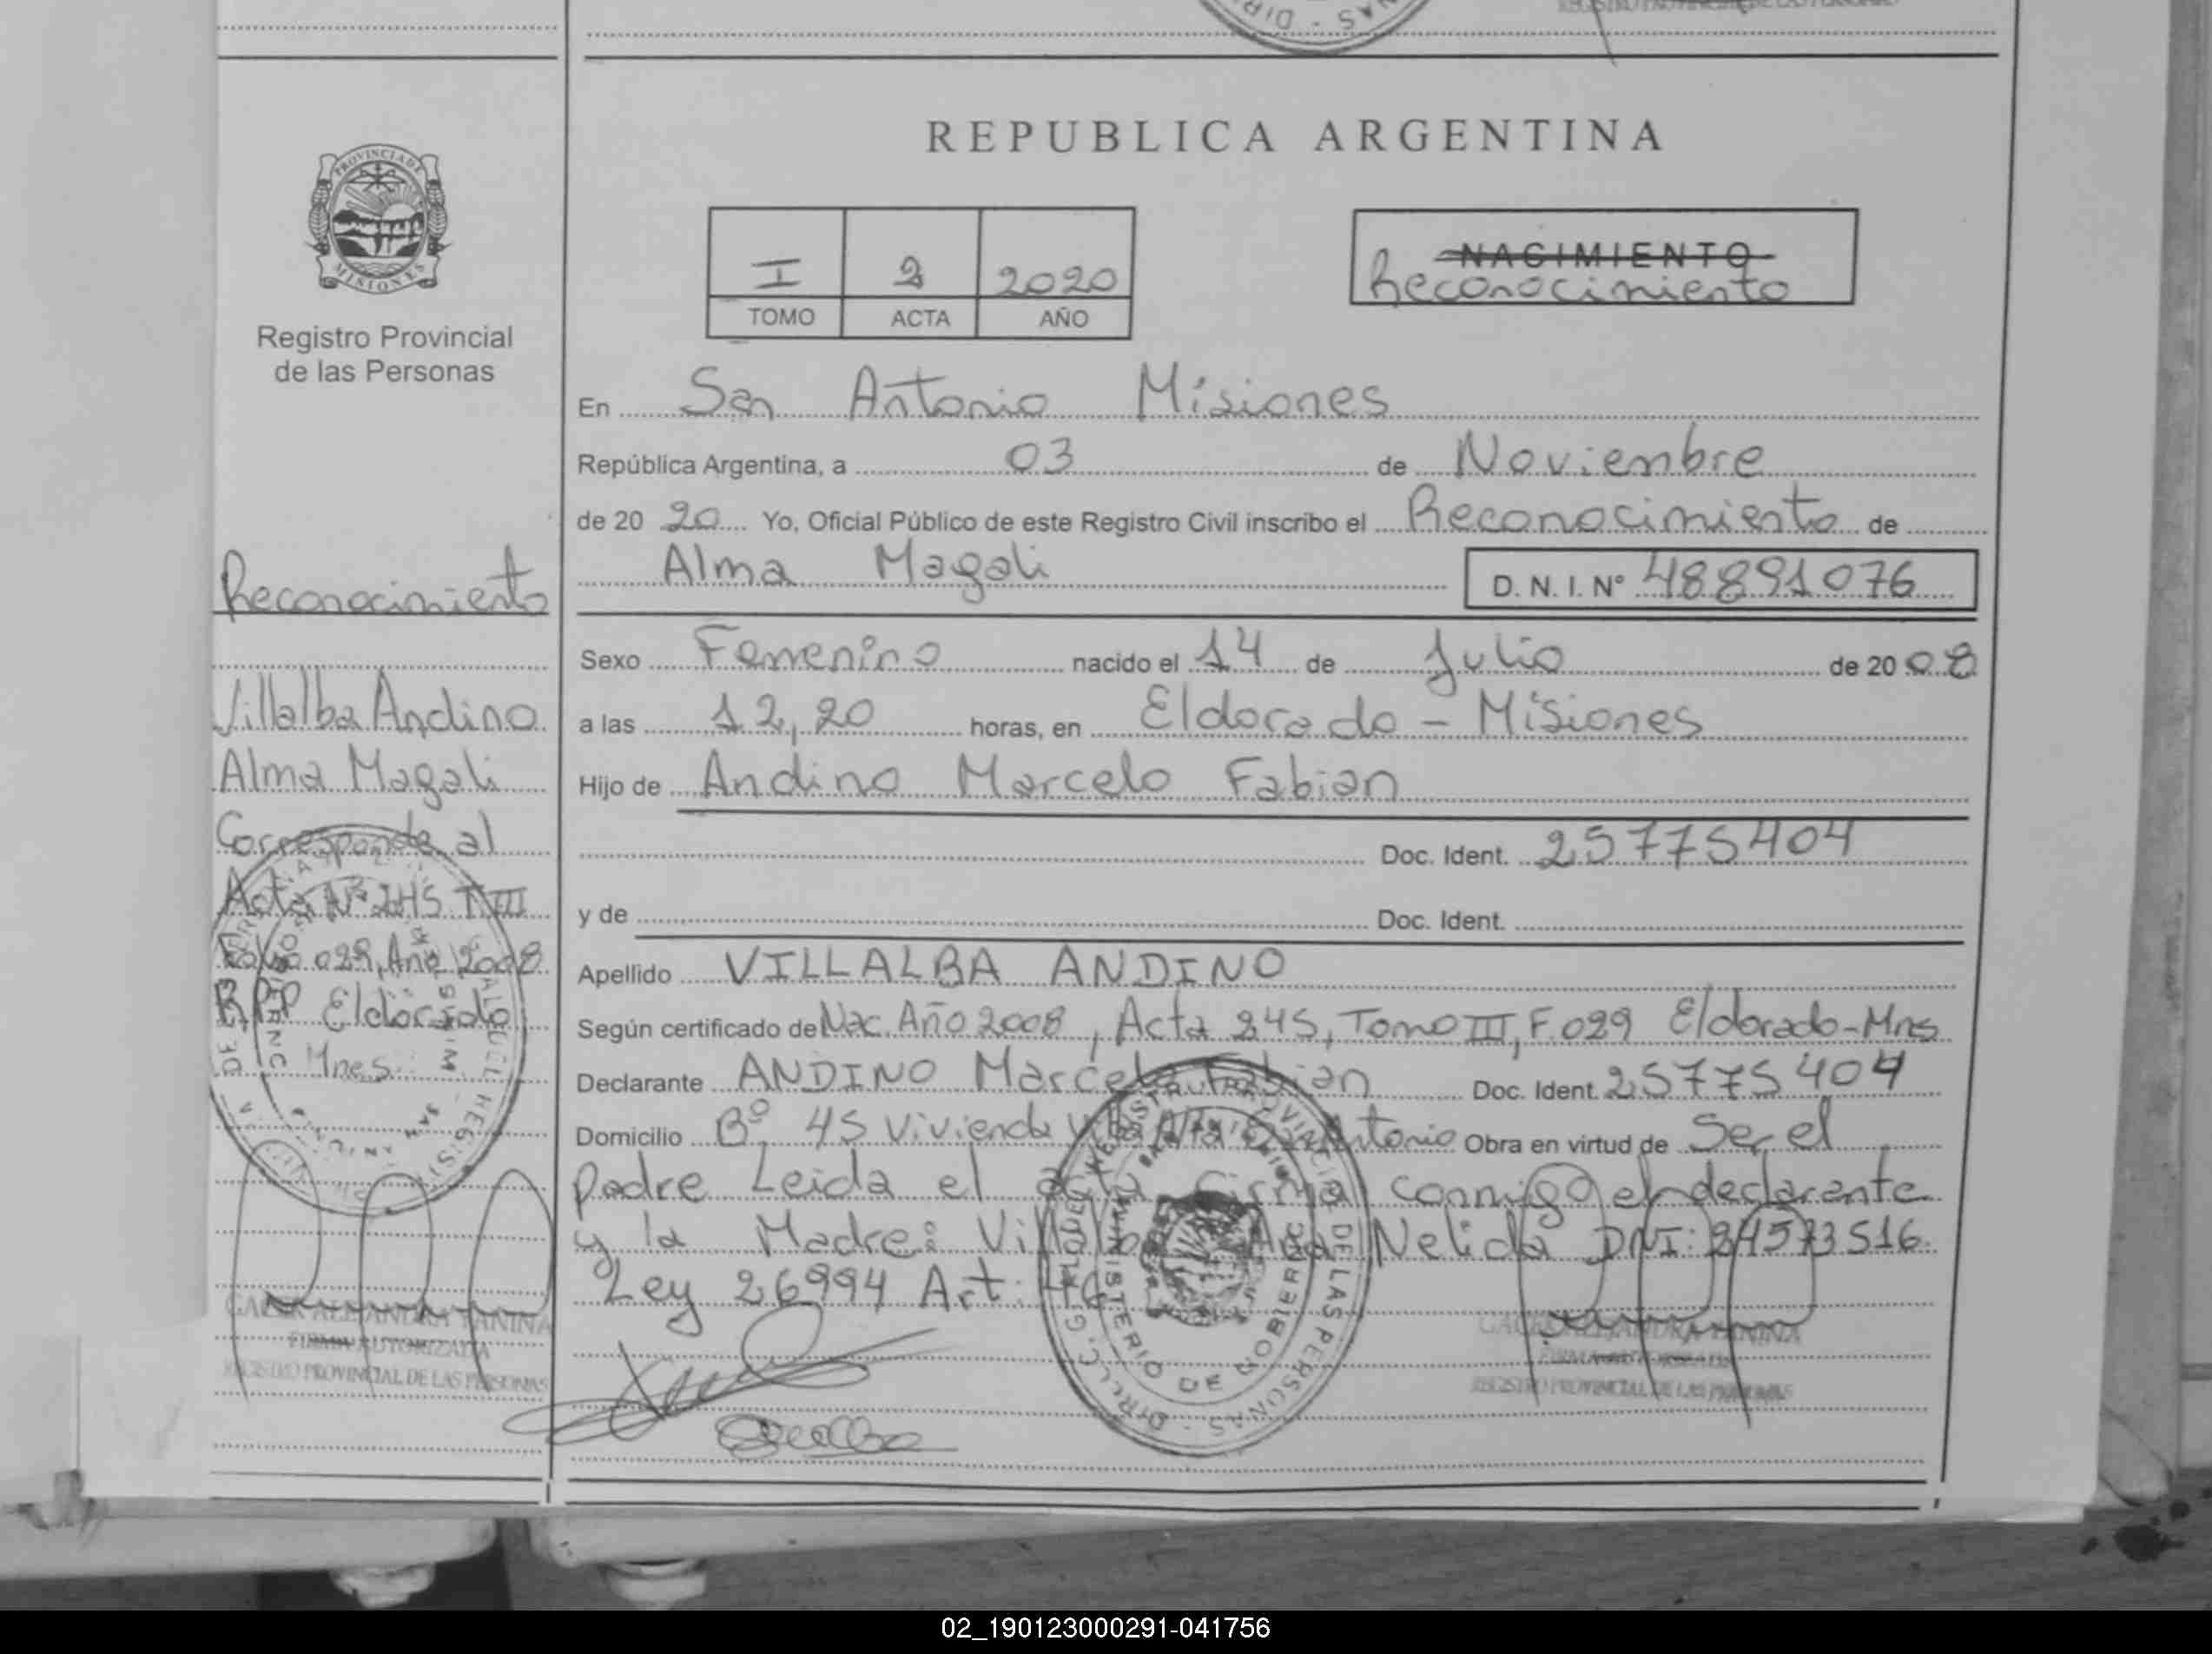 REPUBLICA ARGENTINA
PROVINCIA DE
MISIONES
Registro Provincial
de las Personas
I 2 2020
TOMO ACTA AÑO
NACIMIENTO
Reconocimiento
En San Antonio Misiones
República Argentina, a 03 de Noviembre
de 20 20 Yo, Oficial Público de este Registro Civil inscribo el Reconocimiento de
Alma Magali D. N. I. Nº 48891076
Sexo Femenino nacido el 14 de Julio de 20 08
a las 12,20 horas, en Eldorado - Misiones
Hijo de Andino Marcelo Fabian
Doc. Ident. 25775404
y de Doc. Ident.
Apellido VILLALBA ANDINO
Según certificado de Nac. Año 2008, Acta 245, Tomo III, F. 029 Eldorado-Mns
Declarante ANDINO Marcelo Fabian Doc. Ident. 25775404
Domicilio Bº 45 Vivienda Villa Alta San Antonio Obra en virtud de Ser el
padre Leida el acta firma conmigo el declarante
y la Madre: Villalba Nelida DNI: 24573516
Ley 26994 Art:
Reconocimiento
Villalba Andino
Alma Magali
Corresponde al
Acta Nº 245 T III
Folio 029, Año 2008
RPP Eldorado
Mnes.
FIRMA AUTORIZADA
REGISTRO PROVINCIAL DE LAS PERSONAS
MINISTERIO DE GOBIERNO
REGISTRO PROVINCIAL DE LAS PERSONAS
REGISTRO PROVINCIAL DE LAS PERSONAS
02_190123000291-041756